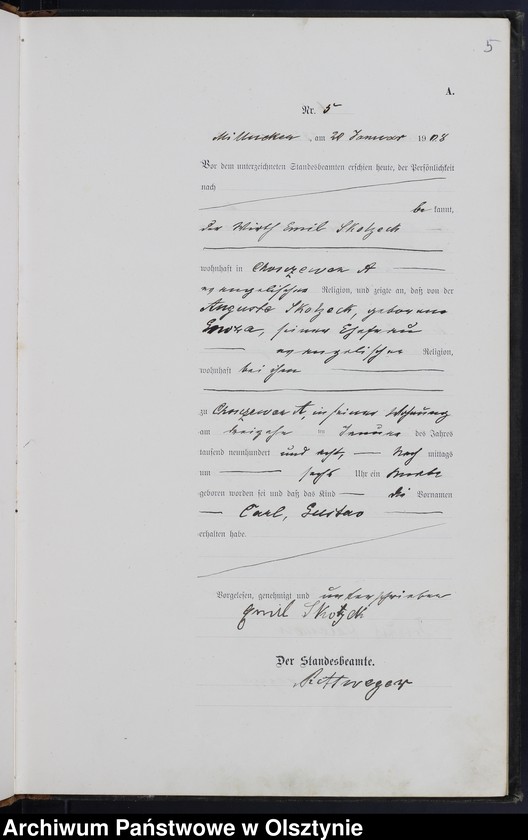 5
A.
Nr. 5
Milucken, am 20 Januar 1908
Vor dem unterzeichneten Standesbeamten erschien heute, der Persönlichkeit
nach
be kannt,
der Wirth Emil Skotzeck
wohnhaft in Chosczewen A
evangelischer Religion, und zeigte an, daß von der
Auguste Skotzeck, geborene
seiner Ehefrau
evangelischer Religion,
wohnhaft bei ihm
zu Chosczewen A, in seiner Wohnung
am dreizehn ten Januar des Jahres
tausend neunhundert und acht, Nach mittags
um sechs Uhr ein Knabe
geboren worden sei und daß das Kind die Vornamen
Carl, Gustav
erhalten habe.
Vorgelesen, genehmigt und unterschrieben
Emil Skotzeck
Der Standesbeamte.
Archiwum Państwowe w Olsztynie